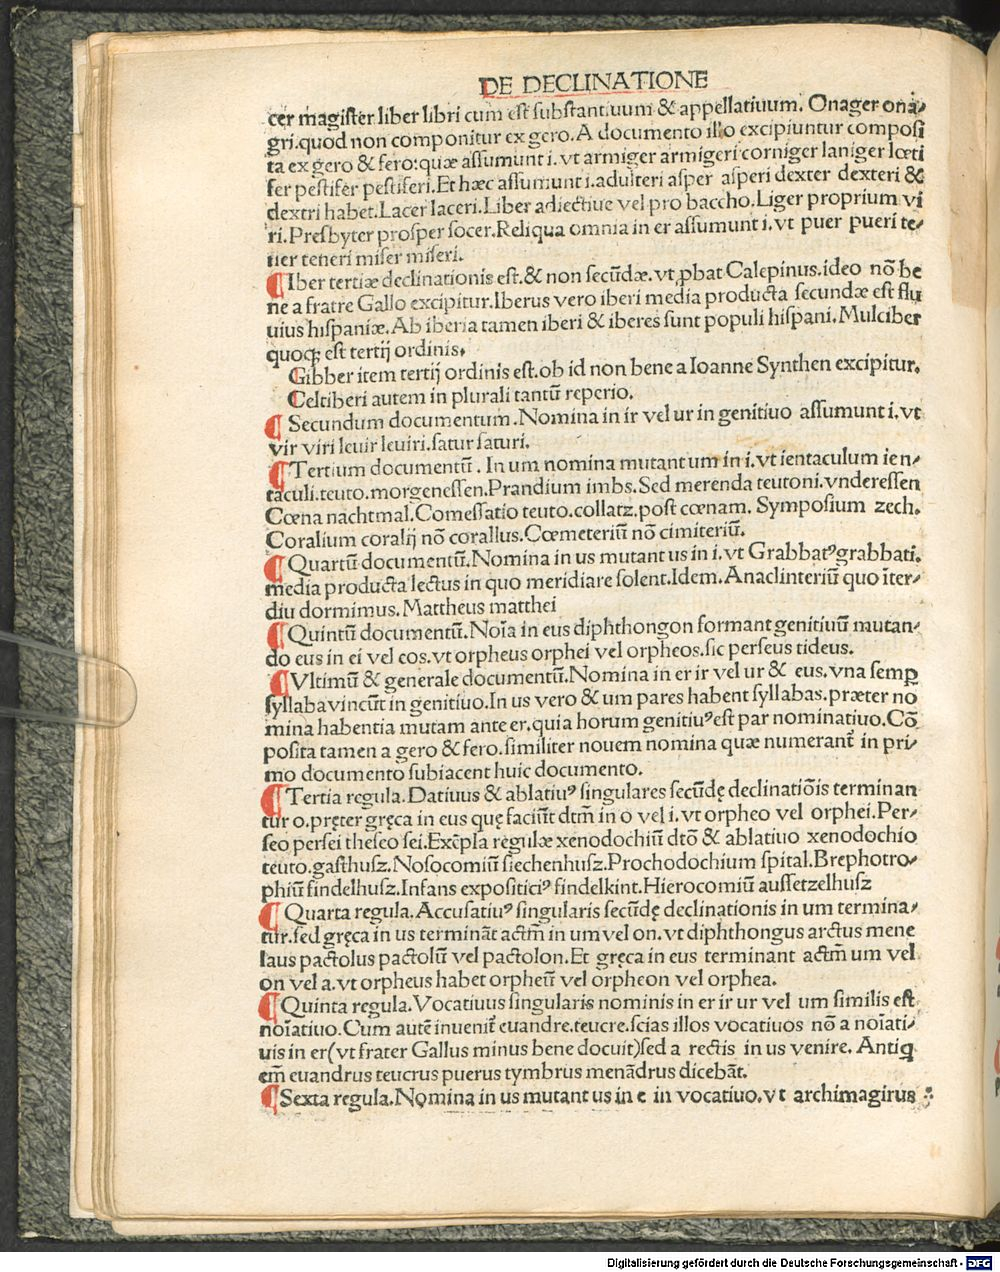 DE DECLINATIONE
cer magister liber libri cum est substantiuum & appellatiuum. Onager ona⸗
gri.quod non componitur ex gero. A documento illo excipiuntur composi
ta ex gero & fero:quæ assumunt i. vt armiger armigeri corniger laniger lœti
fer pestifer pestiferi. Et hæc assumunt i.adulteri asper asperi dexter dexteri &
dextri habet. Lacer laceri. Liber adiectiue vel pro baccho. Liger proprium vi
ri. Presbyter prosper socer. Reliqua omnia in er assumunt i. vt puer pueri te⸗
ner teneri miser miseri.
¶ Iber tertiæ declinationis est. & non secūdæ. vt ꝓbat Calepinus. ideo nō be
ne a fratre Gallo excipitur. Iberus vero iberi media producta secundæ est flu
uius hispaniæ. Ab iberia tamen iberi & iberes sunt populi hispani. Mulciber
quoqꝫ est tertij ordinis.
Gibber item tertij ordinis est. ob id non bene a Ioanne Synthen excipitur.
Celtiberi autem in plurali tantū reperio.
¶ Secundum documentum. Nomina in ir vel ur in genitiuo assumunt i. vt
vir viri leuir leuiri. satur saturi.
¶ Tertium documentū. In um nomina mutant um in i. vt ientaculum ien⸗
taculi. teuto. morgenessen. Prandium imbs. Sed merenda teutoni. vnderessen
Cœna nachtmal. Comessatio teuto. collatz. post cœnam. Symposium zech.
Coralium coralij nō corallus. Cœmeteriū nō cimiteriū.
¶ Quartū documentū. Nomina in us mutant us in i. vt Grabbatꝰ grabbati.
media producta lectus in quo meridiare solent. Idem. Anaclinteriū quo īter⸗
diu dormimus. Mattheus matthei
¶ Quintū documentū. Noīa in eus diphthongon formant genitiuū mutan⸗
do eus in ei vel eos. vt orpheus orphei vel orpheos. sic perseus tideus.
¶ Vltimū & generale documentū. Nomina in er ir vel ur & eus. vna semꝑ
syllaba vincūt in genitiuo. In us vero & um pares habent syllabas. præter no
mina habentia mutam ante er. quia horum genitiuꝰ est par nominatiuo. Cō
posita tamen a gero & fero. similiter nouem nomina quæ numerant᷑ in pri⸗
mo documento subiacent huic documento.
¶ Tertia regula. Datiuus & ablatiuꝰ singulares secūdę declinatiōis terminan
tur o. pręter gręca in eus quę faciūt dtm̄ in o vel i. vt orpheo vel orphei. Per⸗
seo persei theseo sei. Exēpla regulæ xenodochiū dtō & ablatiuo xenodochio
teuto. gasthusz. Nosocomiū siechenhusz. Prochodochium spital. Brephotro⸗
phiū findelhusz. Infans expositiciꝰ findelkint. Hierocomiū aussetzelhusz
¶ Quarta regula. Accusatiuꝰ singularis secūdę declinationis in um termina⸗
tur. sed gręca in us termināt actm̄ in um vel on. vt diphthongus arctus mene
laus pactolus pactolū vel pactolon. Et gręca in eus terminant actm̄ um vel
on vel a. vt orpheus habet orpheū vel orpheon vel orphea.
¶ Quinta regula. Vocatiuus singularis nominis in er ir ur vel um similis est
noīatiuo. Cum autē inuenit᷑ euandre. teucre. scias illos vocatiuos nō a noīati⸗
uis in er(vt frater Gallus minus bene docuit)sed a rectis in us venire. Antiq
em̄ euandrus teucrus puerus tymbrus menādrus dicebāt.
¶ Sexta regula. Nomina in us mutant us in e in vocatiuo. vt archimagirus
Digitalisierung gefördert durch die Deutsche Forschungsgemeinschaft - DFG